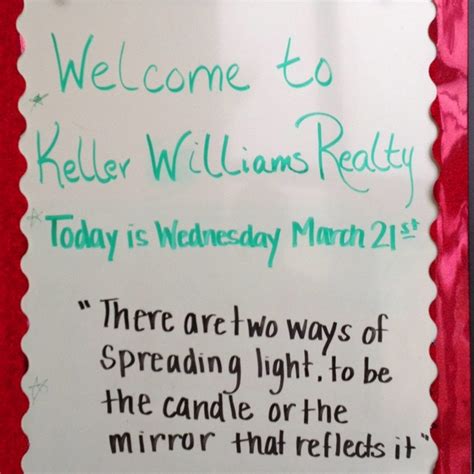 Welcome to
Keller Williams Realty
Today is Wednesday March 21st
"There are two ways of
spreading light. to be
the candle or the
mirror that reflects it"